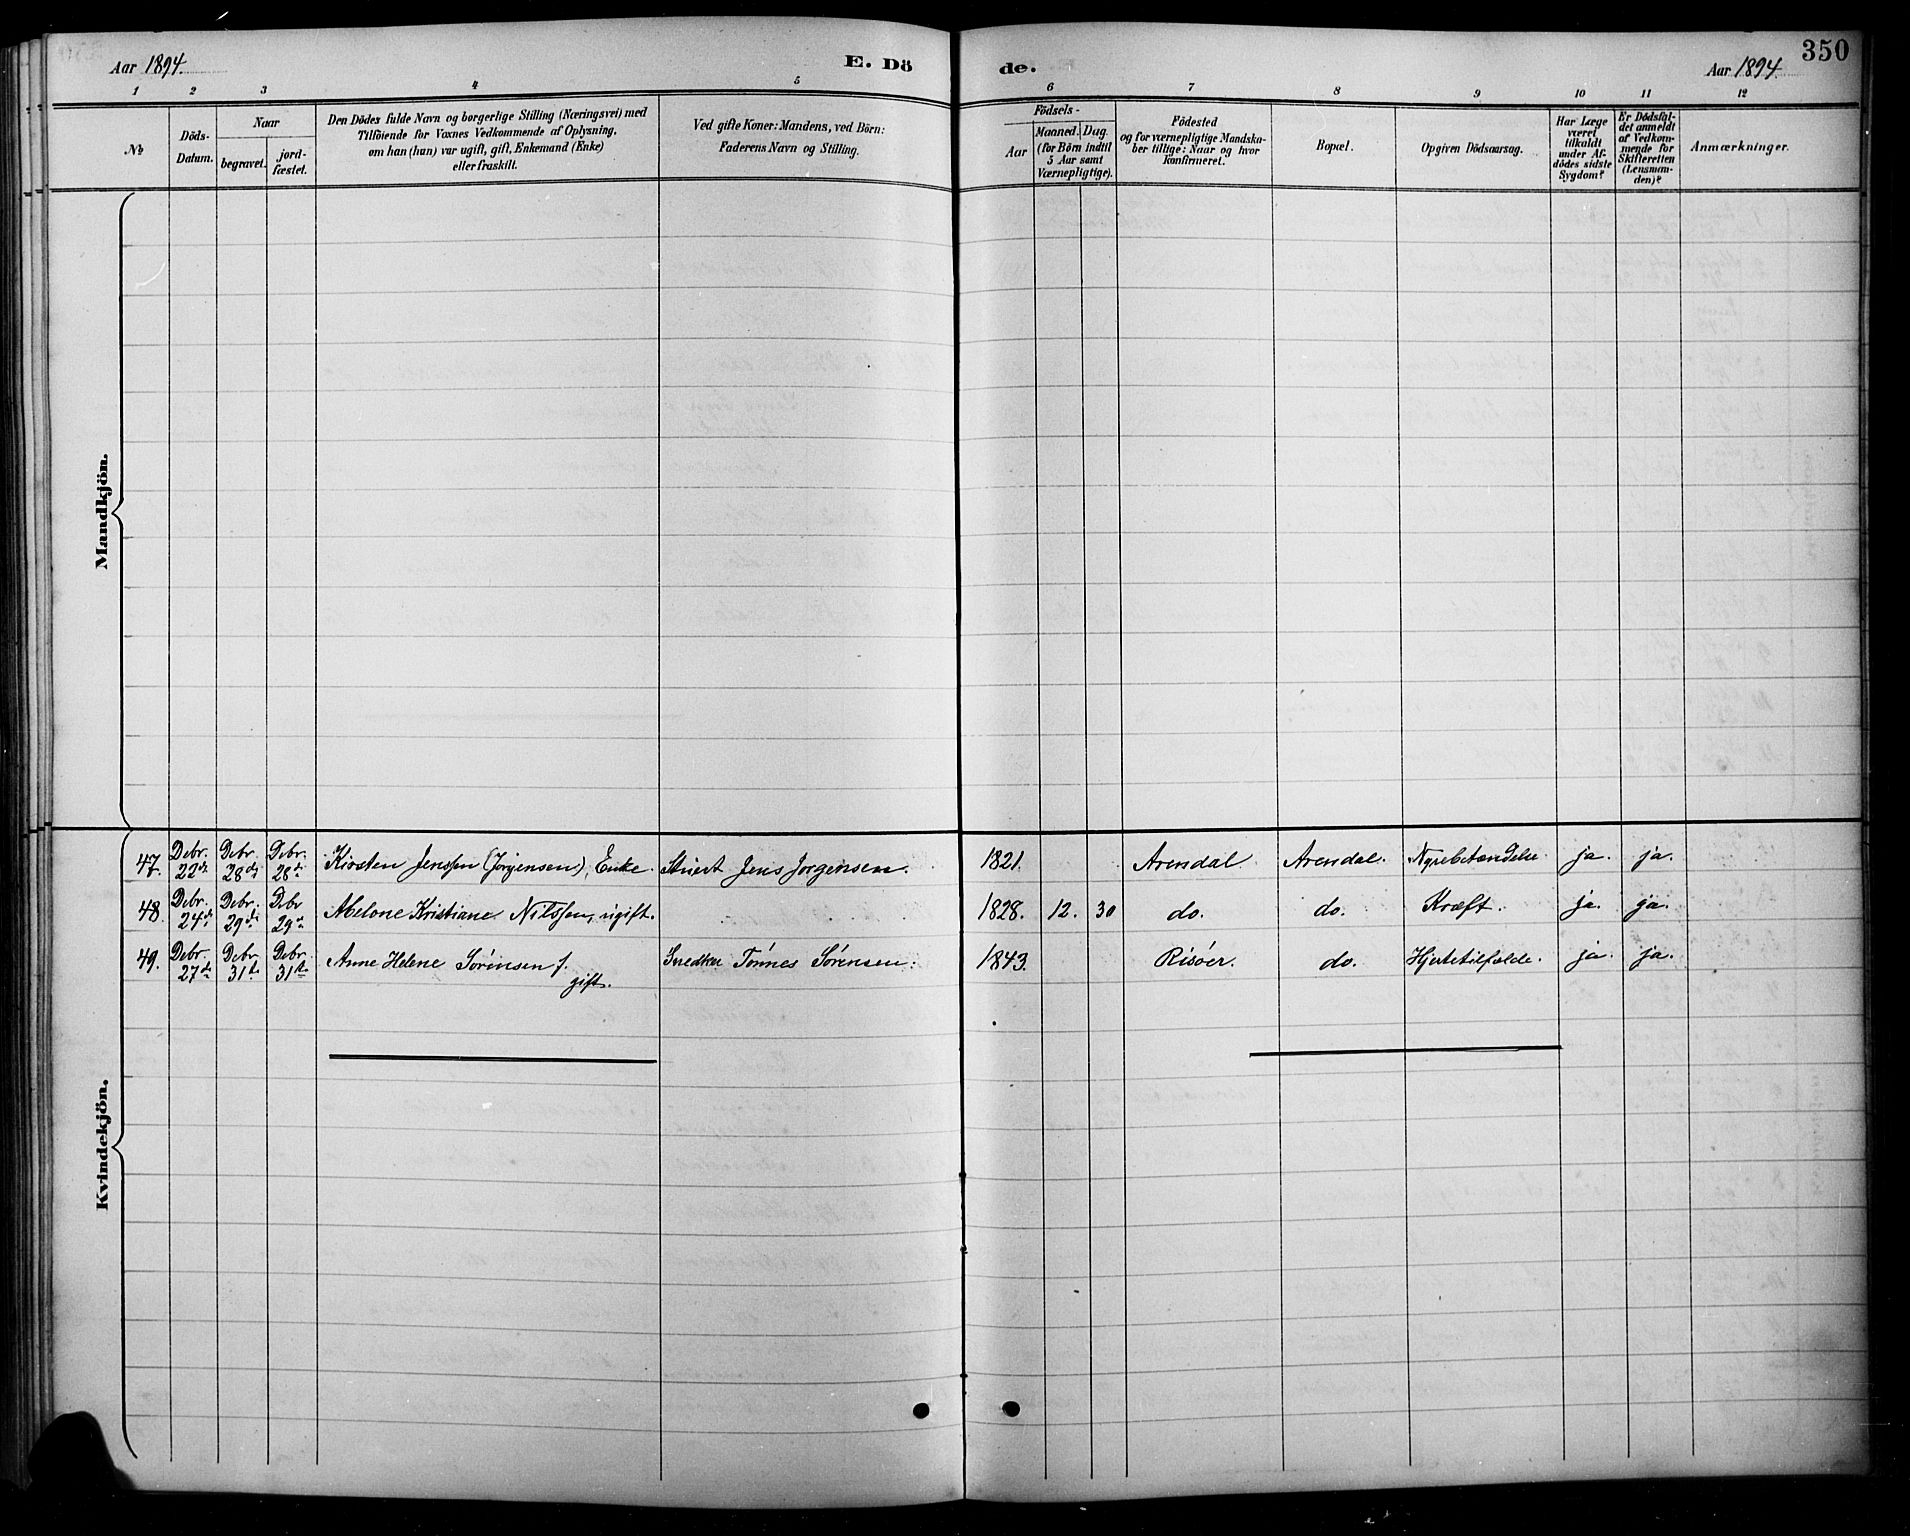 Aar 1894.
E. Dö
de.
Aar 1894.
350
1 2 3 4 5 6 7 8 9 10 11 12
№
Döds-
Datum.
Naar
begravet.
jord-
fæstet.
Den Dödes fulde Navn og borgerlige Stilling (Næringsvei) med
Tilföiende for Voxnes Vedkommende af Oplysning,
om han (hun) var ugift, gift, Enkemand (Enke)
eller fraskilt.
Ved gifte Koner: Mandens, ved Börn:
Faderens Navn og Stilling.
Födsels-
Aar
Maaned. Dag.
(for Börn indtil
5 Aar samt
Værnepligtige).
Födested
og for værnepligtige Mandska-
ber tillige: Naar og hvor
konfirmeret.
Bopæl.
Opgiven Dödsaarsag.
Har Læge
været
tilkaldt
under Af-
dödes sidste
Sygdom?
Er Dödsfal-
det anmeldt
af Vedkom-
mende for
Skifteretten
(Lensman-
den)?
Anmærkninger.
Mandkjön.
Kvindekjön.
47. Debr. 22de Debr. 28de Debr. 28de Kirsten Jenssen (Jorgensen), Enke. Stuert Jens Jorgensen. 1821. Arendal. Arendal. Nyrebetændelse. ja. ja.
48. Debr. 24de Debr. 29de Debr 29de Abelone Kristiane Nilssen, ugift. 1828. 12. 30 do. do. Kræft. ja. ja.
49. Debr. 27de Debr. 31te Debr. 31te Anne Helene Sørensen f.
gift. Snedker Tønnes Sørensen. 1843. Risøer. do. Hjertetilfælde. ja. ja.